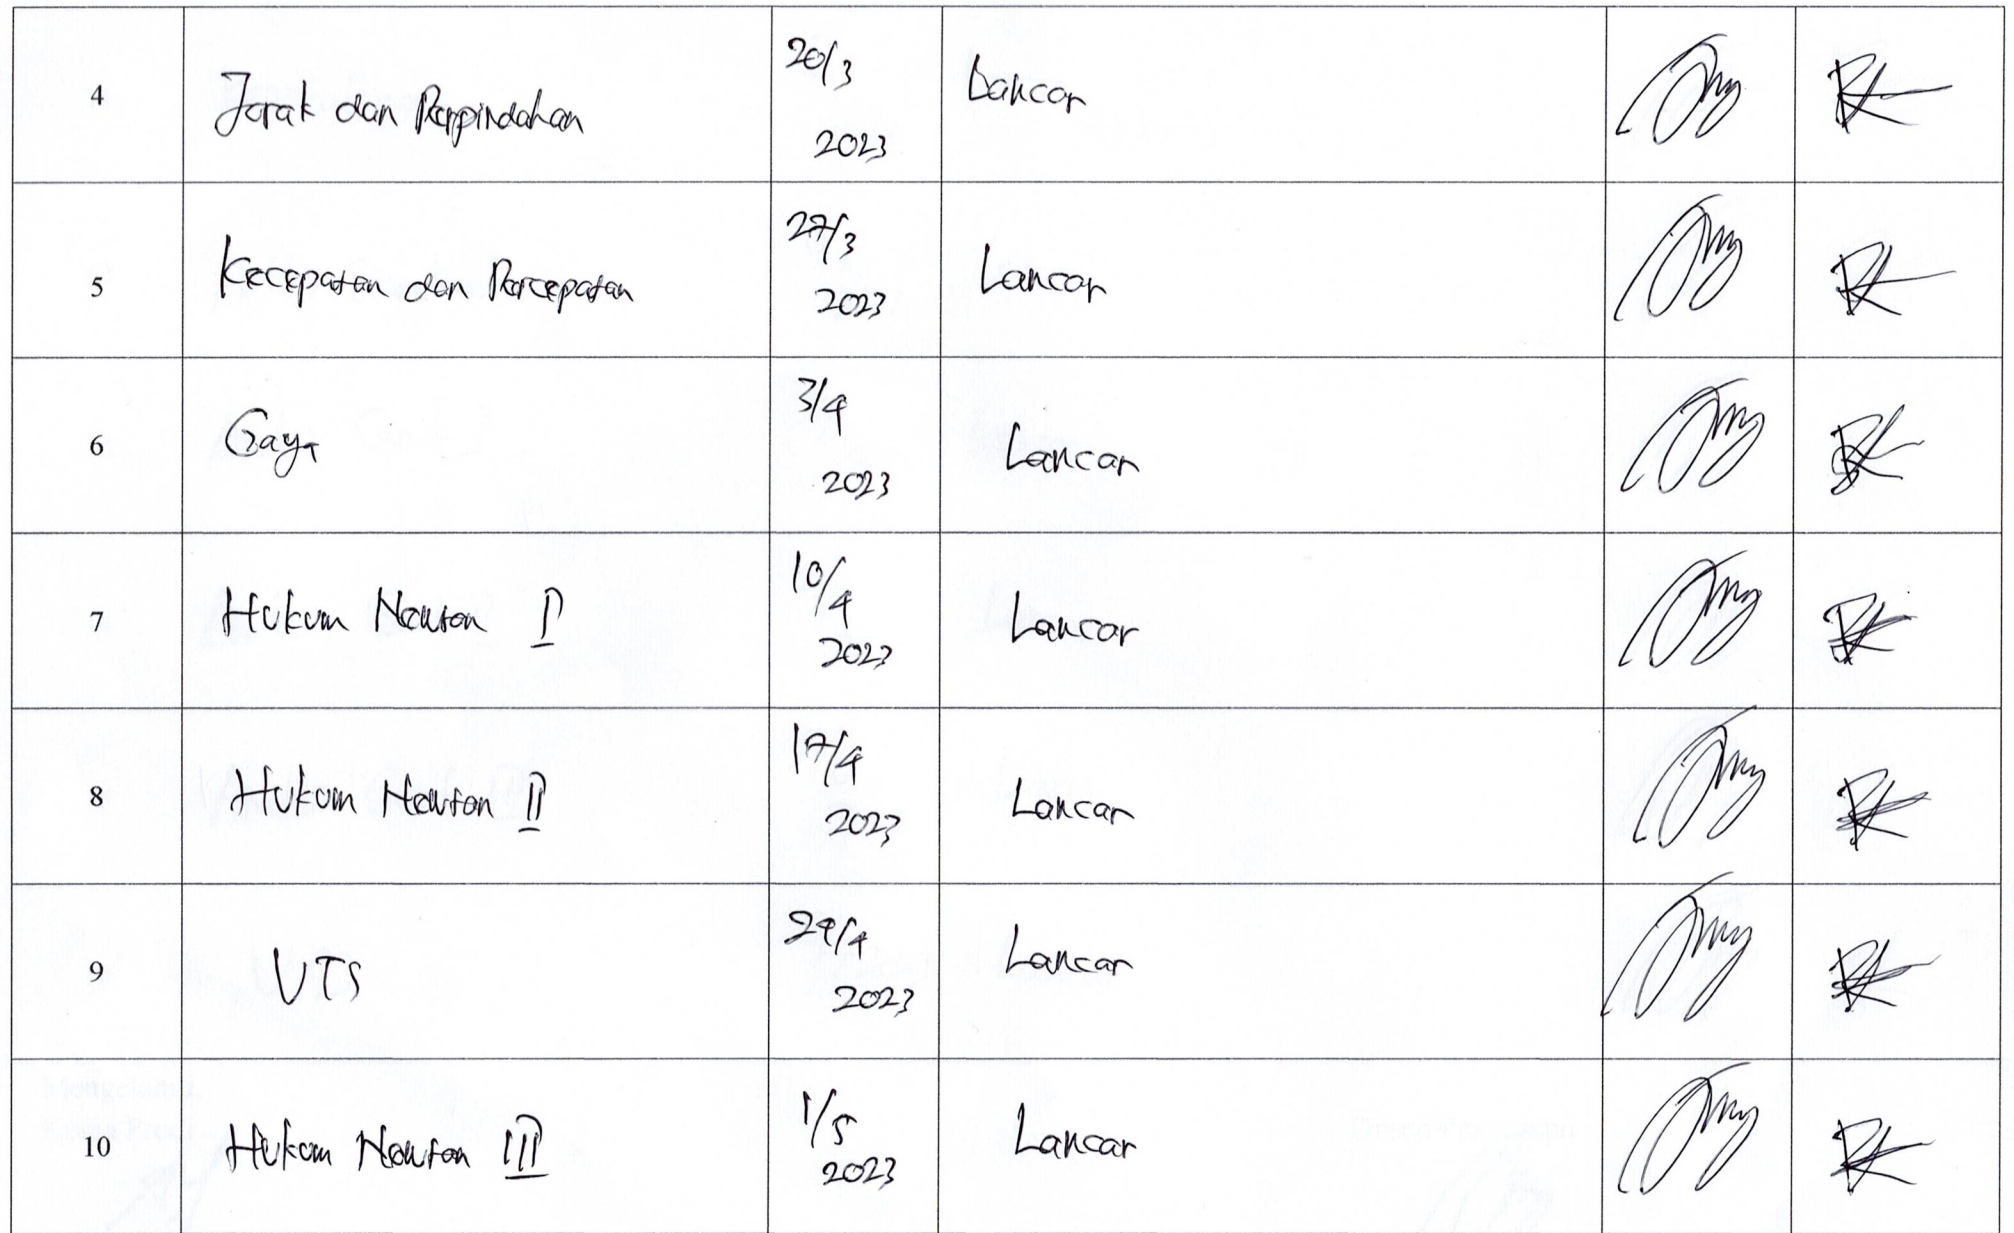 4 Jarak dan Perpindahan 20/3 2023 Lancar
5 Kecepatan dan Percepatan 27/3 2023 Lancar
6 Gaya 3/4 2023 Lancar
7 Hukum Newton I 10/4 2023 Lancar
8 Hukum Newton II 17/4 2023 Lancar
9 UTS 24/4 2023 Lancar
10 Hukum Newton III 1/5 2023 Lancar